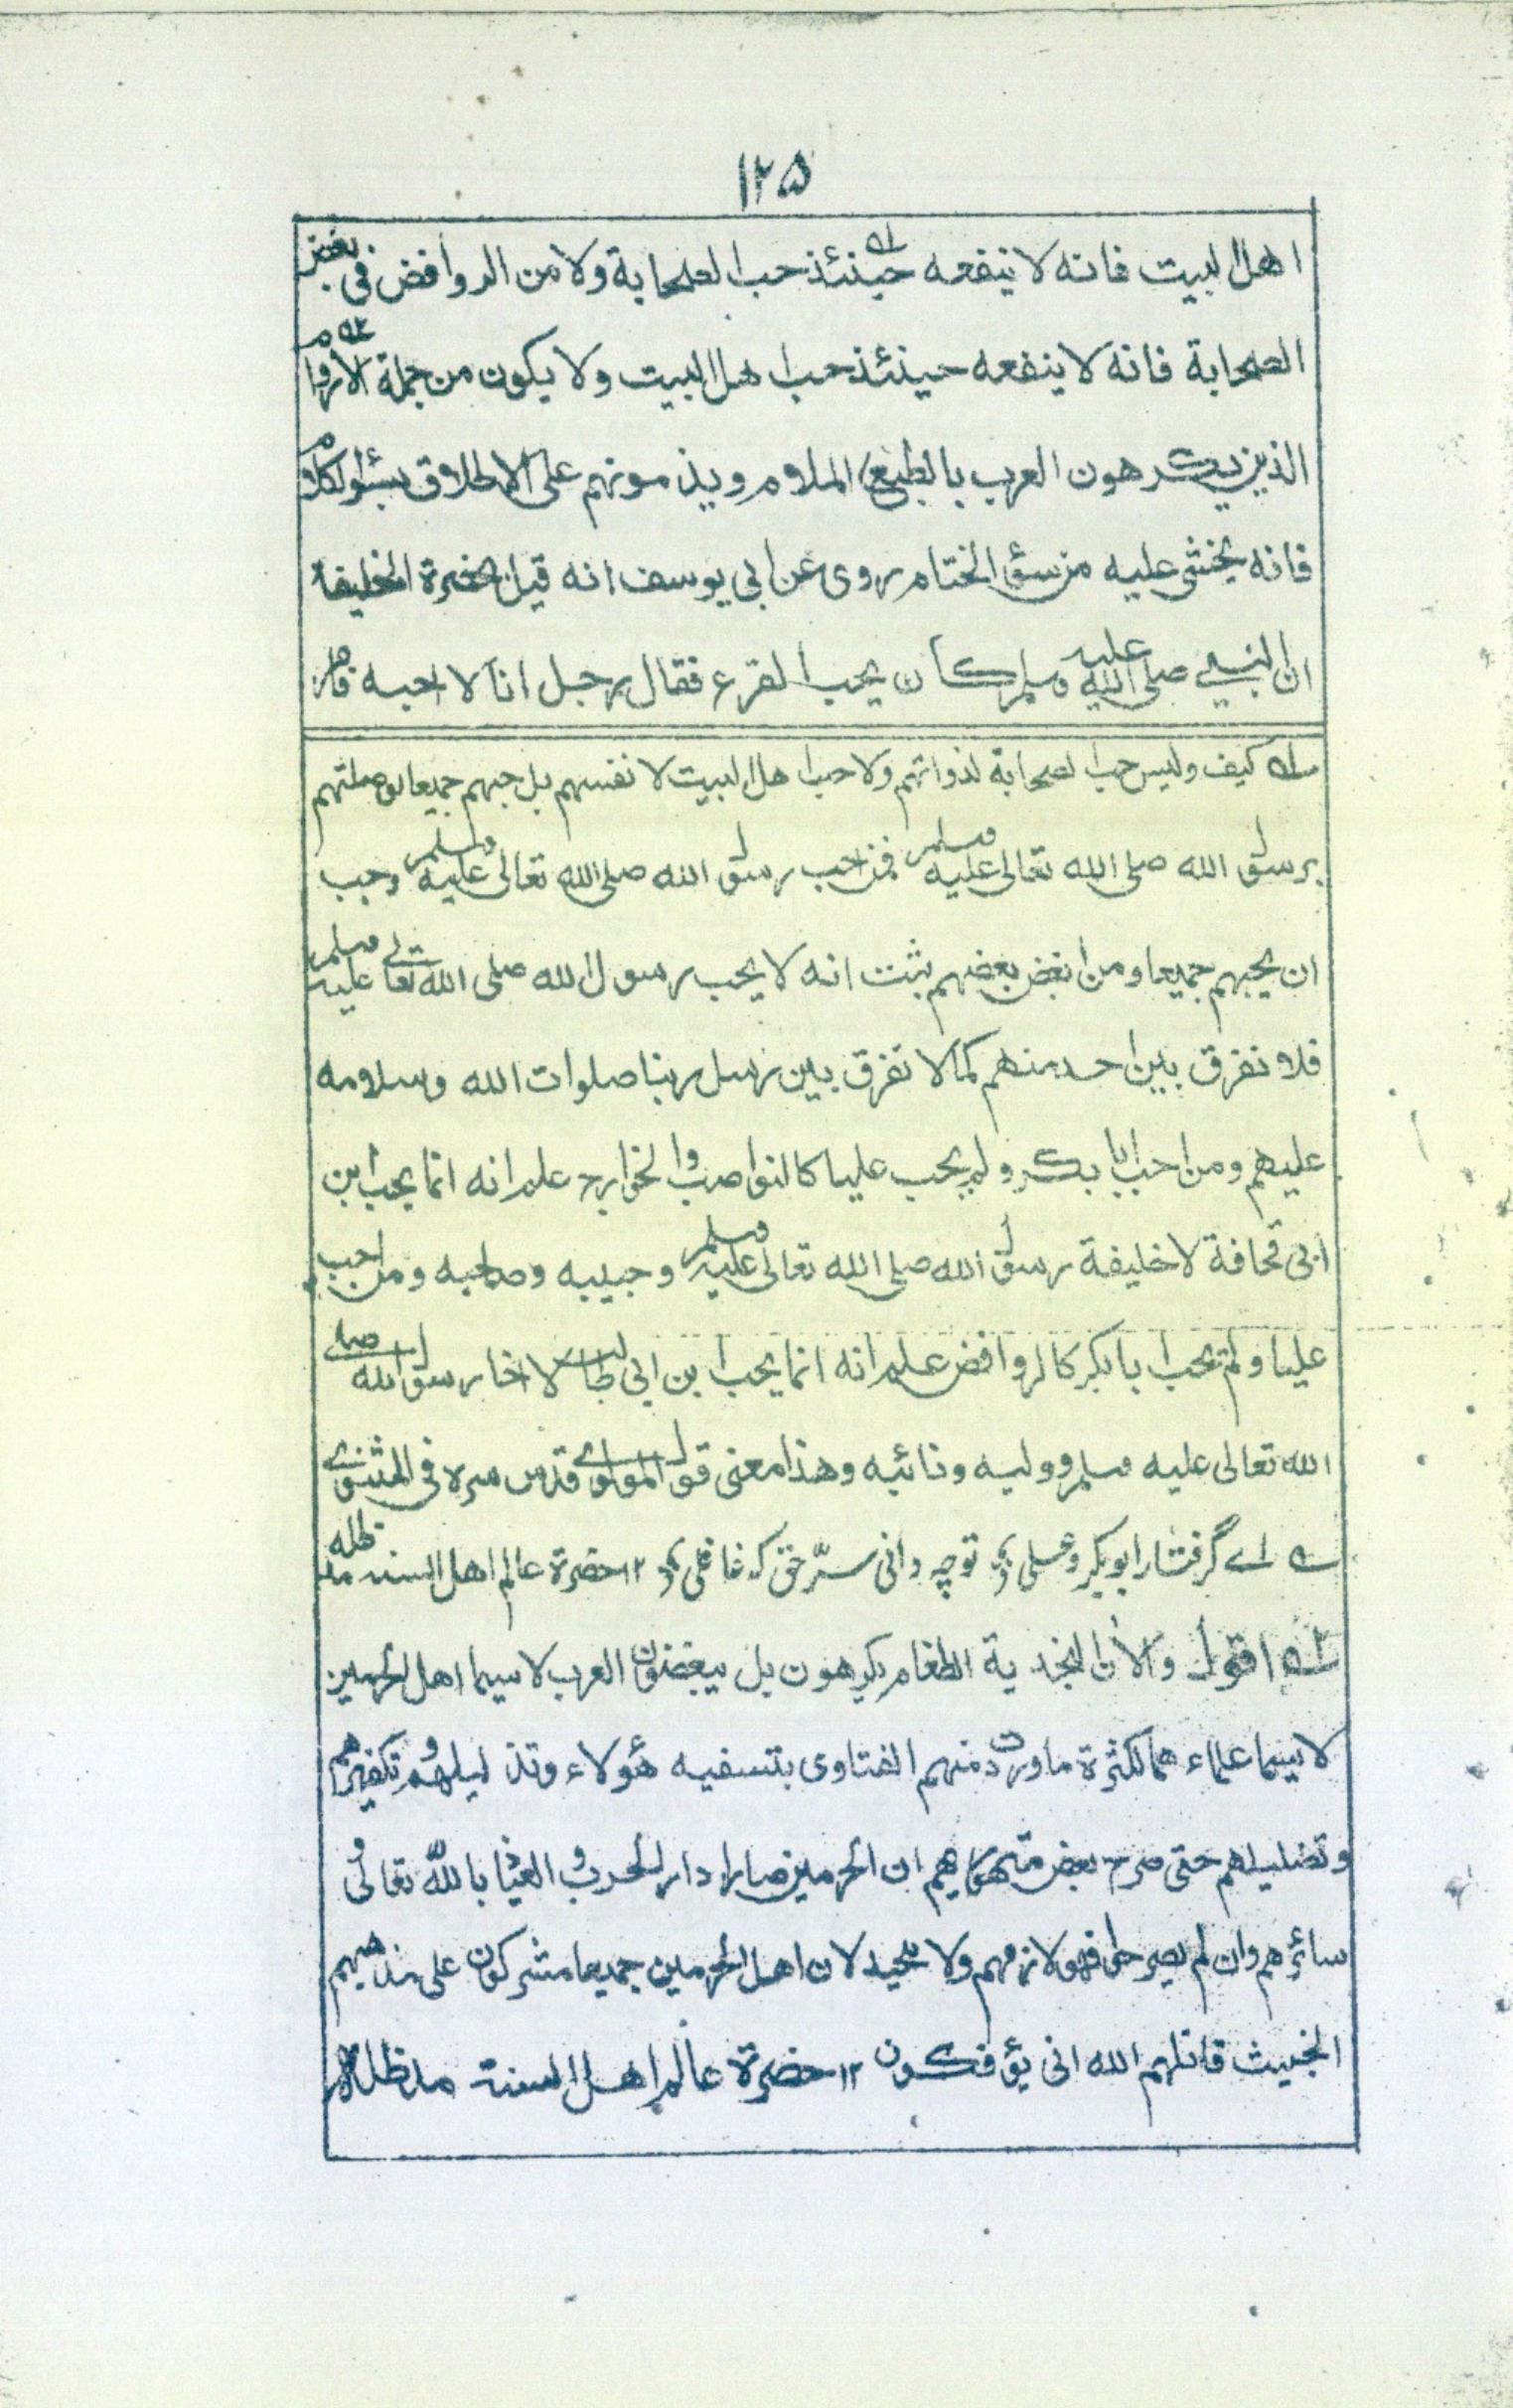 ۱۲۵
اهل البيت فانه لا ينفعه حينئذ حب الصحابة ولا من الروافض فى بغض
الصحابة فانه لا ينفعه حينئذ حب اهل البيت ولا يكون من جملة الاروام
الذين يكرهون العرب بالطبع الملام ويذمونهم على الاطلاق بسئو الكلام
فانه يخشى عليه من سؤ الختام روى عن ابى يوسف انه قيل بحضرة الخليفة
ان النبى صلى الله عليه وسلم كان يحب القرع فقال رجل انا لا احبه فامر
ل١ كيف وليس حب الصحابة لذواتهم ولا حب اهل البيت لانفسهم بل حبهم جميعا لوصلتهم
برسول الله صلى الله تعالى عليه وسلم فمن احب رسول الله صلى الله تعالى عليه وسلم وجب
ان يحبهم جميعا ومن ابغض بعضهم ثبت انه لا يحب رسول الله صلى الله تعالى عليه وسلم
فلا نفرق بين احد منهم كما لا نفرق بين رسل ربنا صلوات الله وسلامه
عليهم ومن احب ابا بكر ولم يحب عليا كالنواصب والخوارج علم انه انما يحب ابن
ابى قحافة لا خليفة رسول الله صلى الله تعالى عليه وسلم وحبيبه وصاحبه ومن احب
عليا ولم يحب ابا بكر كالروافض علم انه انما يحب ابن ابى طالب لا اخا رسول الله صلى
الله تعالى عليه وسلم ووليه ونائبه وهذا معنى قول المولوى قدس سره فى المثنوى
اے گرفتار ابوبکر وعلی تو چه دانی سرّ حق که غافلی ۱۲ حضرة عالم اهل السنة مد ظله
ل٢ اقول والآن النجدية الطغام يكرهون بل يبغضون العرب لا سيما اهل الحرمين
لا سيما علماءهما لكثرة ما وردت منهم الفتاوى بتسفيه هؤلاء وتذليلهم وتكفيرهم
وتضليلهم حتى صرح بعض متهوريهم ان الحرمين صارا دار الحرب والعياذ بالله تعالى و
سائرهم وان لم يصرحوا فهو لازمهم ولا محيد لان اهل الحرمين جميعا مشركون على مذهبهم
الخبيث قاتلهم الله انى يؤفكون ۱۲ حضرة عالم اهل السنة مد ظله